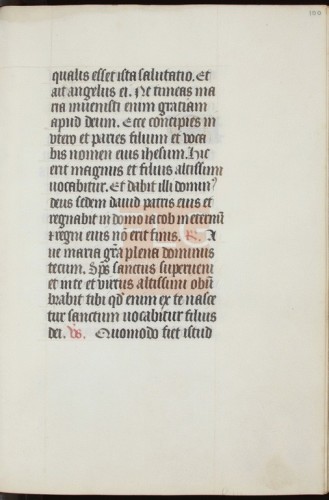 100
qualis esset ista salutatio. Et
ait angelus ei. Ne timeas ma
ria inuenisti enim gratiam
apud deum. Ecce concipies in
vtero et paries filium et voca
bis nomen eius ihesum. Hic
erit magnus et filius altissimi
uocabitur. Et dabit illi domin⁹
deus sedem dauid patris eius et
regnabit in domo iacob in eternū
⁊ regni eius nō erit finis. ℟. A
ue maria grā plena dominus
tecum. Sp̄s sanctus superueni
et in te et virtus altissimi obū
brabit tibi qd̄ enim ex te nasce
tur sanctum uocabitur filius
dei. v̄s. Quomodo fiet istud